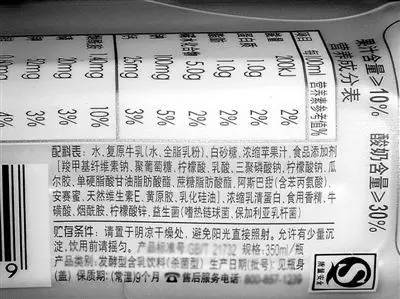 果汁含量≥10% 酸奶含量≥30%
营养成分表
项目 每100ml 营养素参考值%
200kJ 2%
1.0g 2%
1.0g 2%
5.0g 2%
100mg 5%
25mg 3%
140mg 10%
配料表：水、复原牛乳(水、全脂乳粉)、白砂糖、浓缩苹果汁、食品添加剂
[羧甲基纤维素钠、聚葡萄糖、柠檬酸、乳酸、三聚磷酸钠、柠檬酸钠、瓜
尔胶、单硬脂酸甘油脂肪酸酯、蔗糖脂肪酸酯、阿斯巴甜(含苯丙氨酸)、
安赛蜜、天然维生素E、黄原胶、乳化硅油]、浓缩乳清蛋白、食用香精、牛
磺酸、烟酰胺、柠檬酸锌、益生菌(嗜热链球菌、保加利亚乳杆菌)
贮存条件：请置于阴凉干燥处，避免阳光直接照射。允许有少量沉
淀，饮用前请摇匀。产品标准号GB/T 21732 规格:350ml/瓶
产品类型：发酵型含乳饮料(杀菌型) 生产日期(批号):见瓶身
(盖) 保质期:(常温)9个月 ☎售后服务电话
质量安全
9